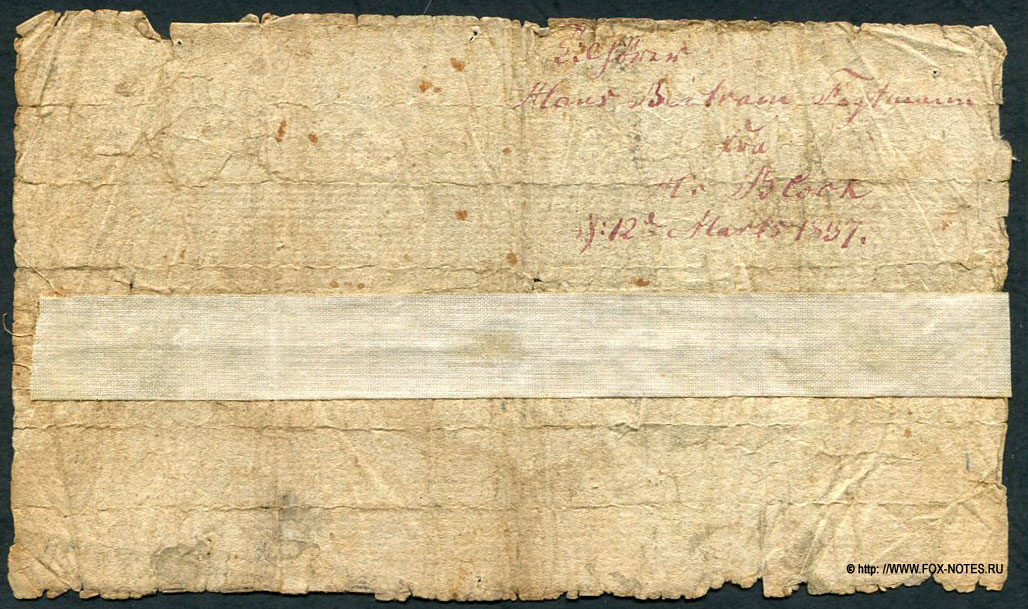 Tilhörer
Hans Bertram Fegtmann
fra
Hr. Block
d: 12te Marts 1837.
© http: //WWW.FOX-NOTES.RU